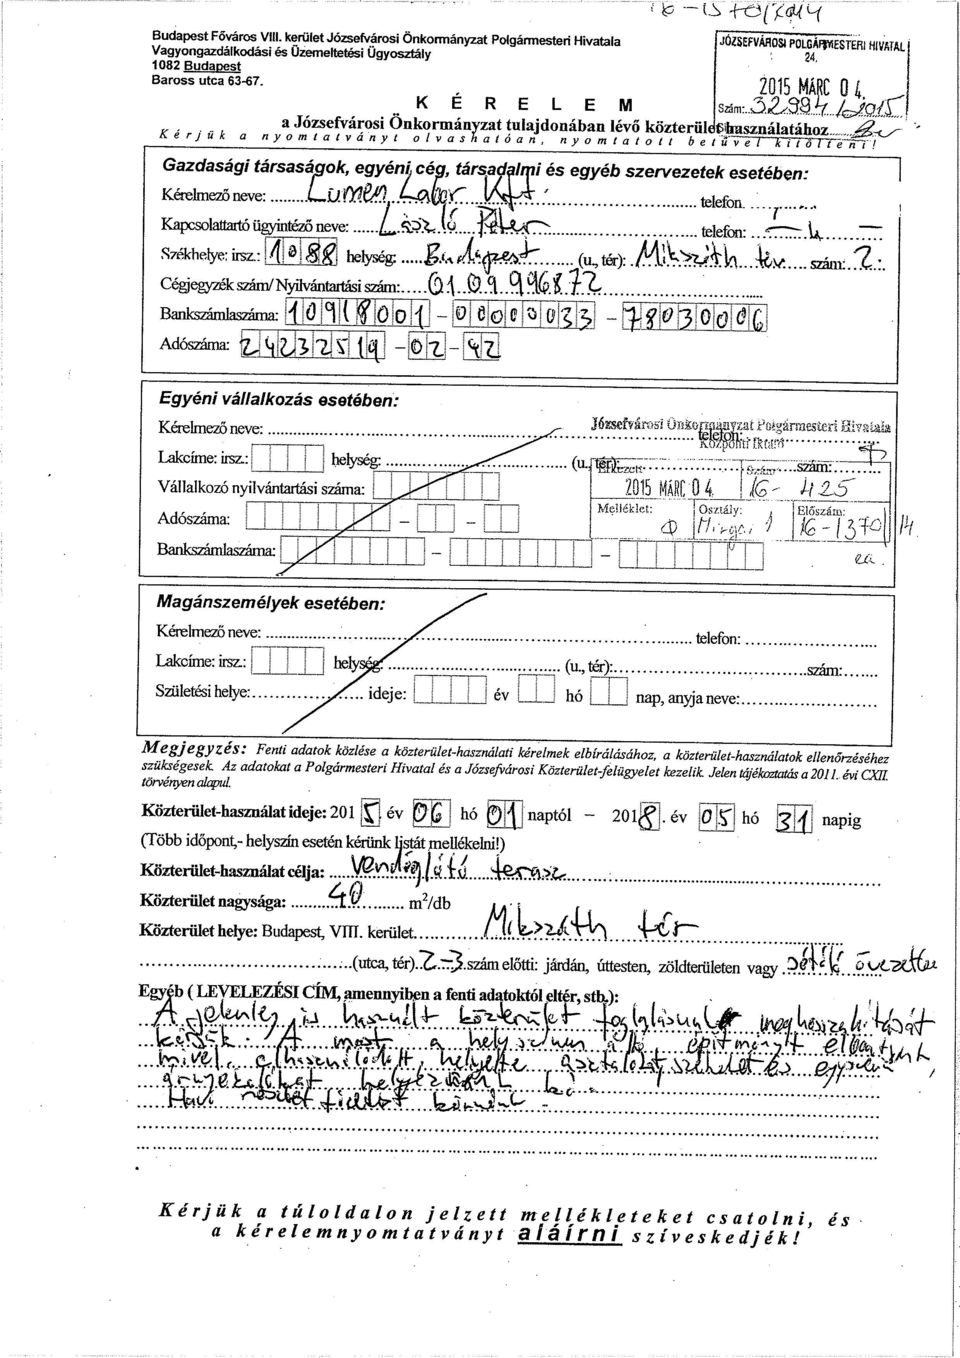 Budapest Főváros VIII. kerület Józsefvárosi Önkormányzat Polgármesteri Hivatala
Vagyongazdálkodási és Üzemeltetési Ügyosztály
1082 Budapest
Baross utca 63-67.
JÓZSEFVÁROSI POLGÁRMESTERI HIVATAL
24.
2015 MÁRC 04.
Szám: 32994/2015
K É R E L E M
a Józsefvárosi Önkormányzat tulajdonában lévő közterület használatához
Kérjük a nyomtatványt olvashatóan, nyomtatott betűvel kitölteni!
Gazdasági társaságok, egyéni cég, társadalmi és egyéb szervezetek esetében:
Kérelmező neve: Lumen Labor Kft. telefon.
Kapcsolattartó ügyintéző neve: László Péter telefon:
Székhelye: irsz.: 1088 helység: Budapest (u., tér): Mikszáth tér szám: 2.
Cégjegyzék szám/ Nyilvántartási szám: 01 09 996872
Bankszámlaszáma: 10918001 - 00000033 - 78030006
Adószáma: 24232519 - 02 - 42
Egyéni vállalkozás esetében:
Kérelmező neve: telefon:
Józsefvárosi Önkormányzat Polgármesteri Hivatala
Központi Iktató
Lakcíme: irsz.: helység: (u., tér): szám:
Érkezett: Szám:
Vállalkozó nyilvántartási száma:
2015 MÁRC 04. 16- 425
Melléklet: Osztály: Előszám:
Adószáma:
16-1370/14
Bankszámlaszáma:
ea.
Magánszemélyek esetében:
Kérelmező neve: telefon:
Lakcíme: irsz.: helység: (u., tér): szám:
Születési helye: ideje: év hó nap, anyja neve:
Megjegyzés: Fenti adatok közlése a közterület-használati kérelmek elbírálásához, a közterület-használatok ellenőrzéséhez
szükségesek. Az adatokat a Polgármesteri Hivatal és a Józsefvárosi Közterület-felügyelet kezelik. Jelen tájékoztatás a 2011. évi CXII.
törvényen alapul.
Közterület-használat ideje: 2015 év 06 hó 01 naptól – 2018. év 05 hó 31 napig
(Több időpont,- helyszín esetén kérünk listát mellékelni!)
Közterület-használat célja: Vendéglátó terasz
Közterület nagysága: 40 m²/db
Közterület helye: Budapest, VIII. kerület Mikszáth tér
(utca, tér) 2-3. szám előtti: járdán, úttesten, zöldterületen vagy sétáló övezetben
Egyéb ( LEVELEZÉSI CÍM, amennyiben a fenti adatoktól eltér, stb.):
A jelenleg is használt közterület foglalásunk meghosszabbítását
kérjük. A most a helyszínen álló építményt elbontjuk
mivel elhasználódott, helyette asztalokat, székeket és egyszerű
árnyékolókat helyezünk ki.
Havi részlet fizetést kérnénk.
Kérjük a túloldalon jelzett mellékleteket csatolni, és
a kérelemnyomtatványt aláírni szíveskedjék!